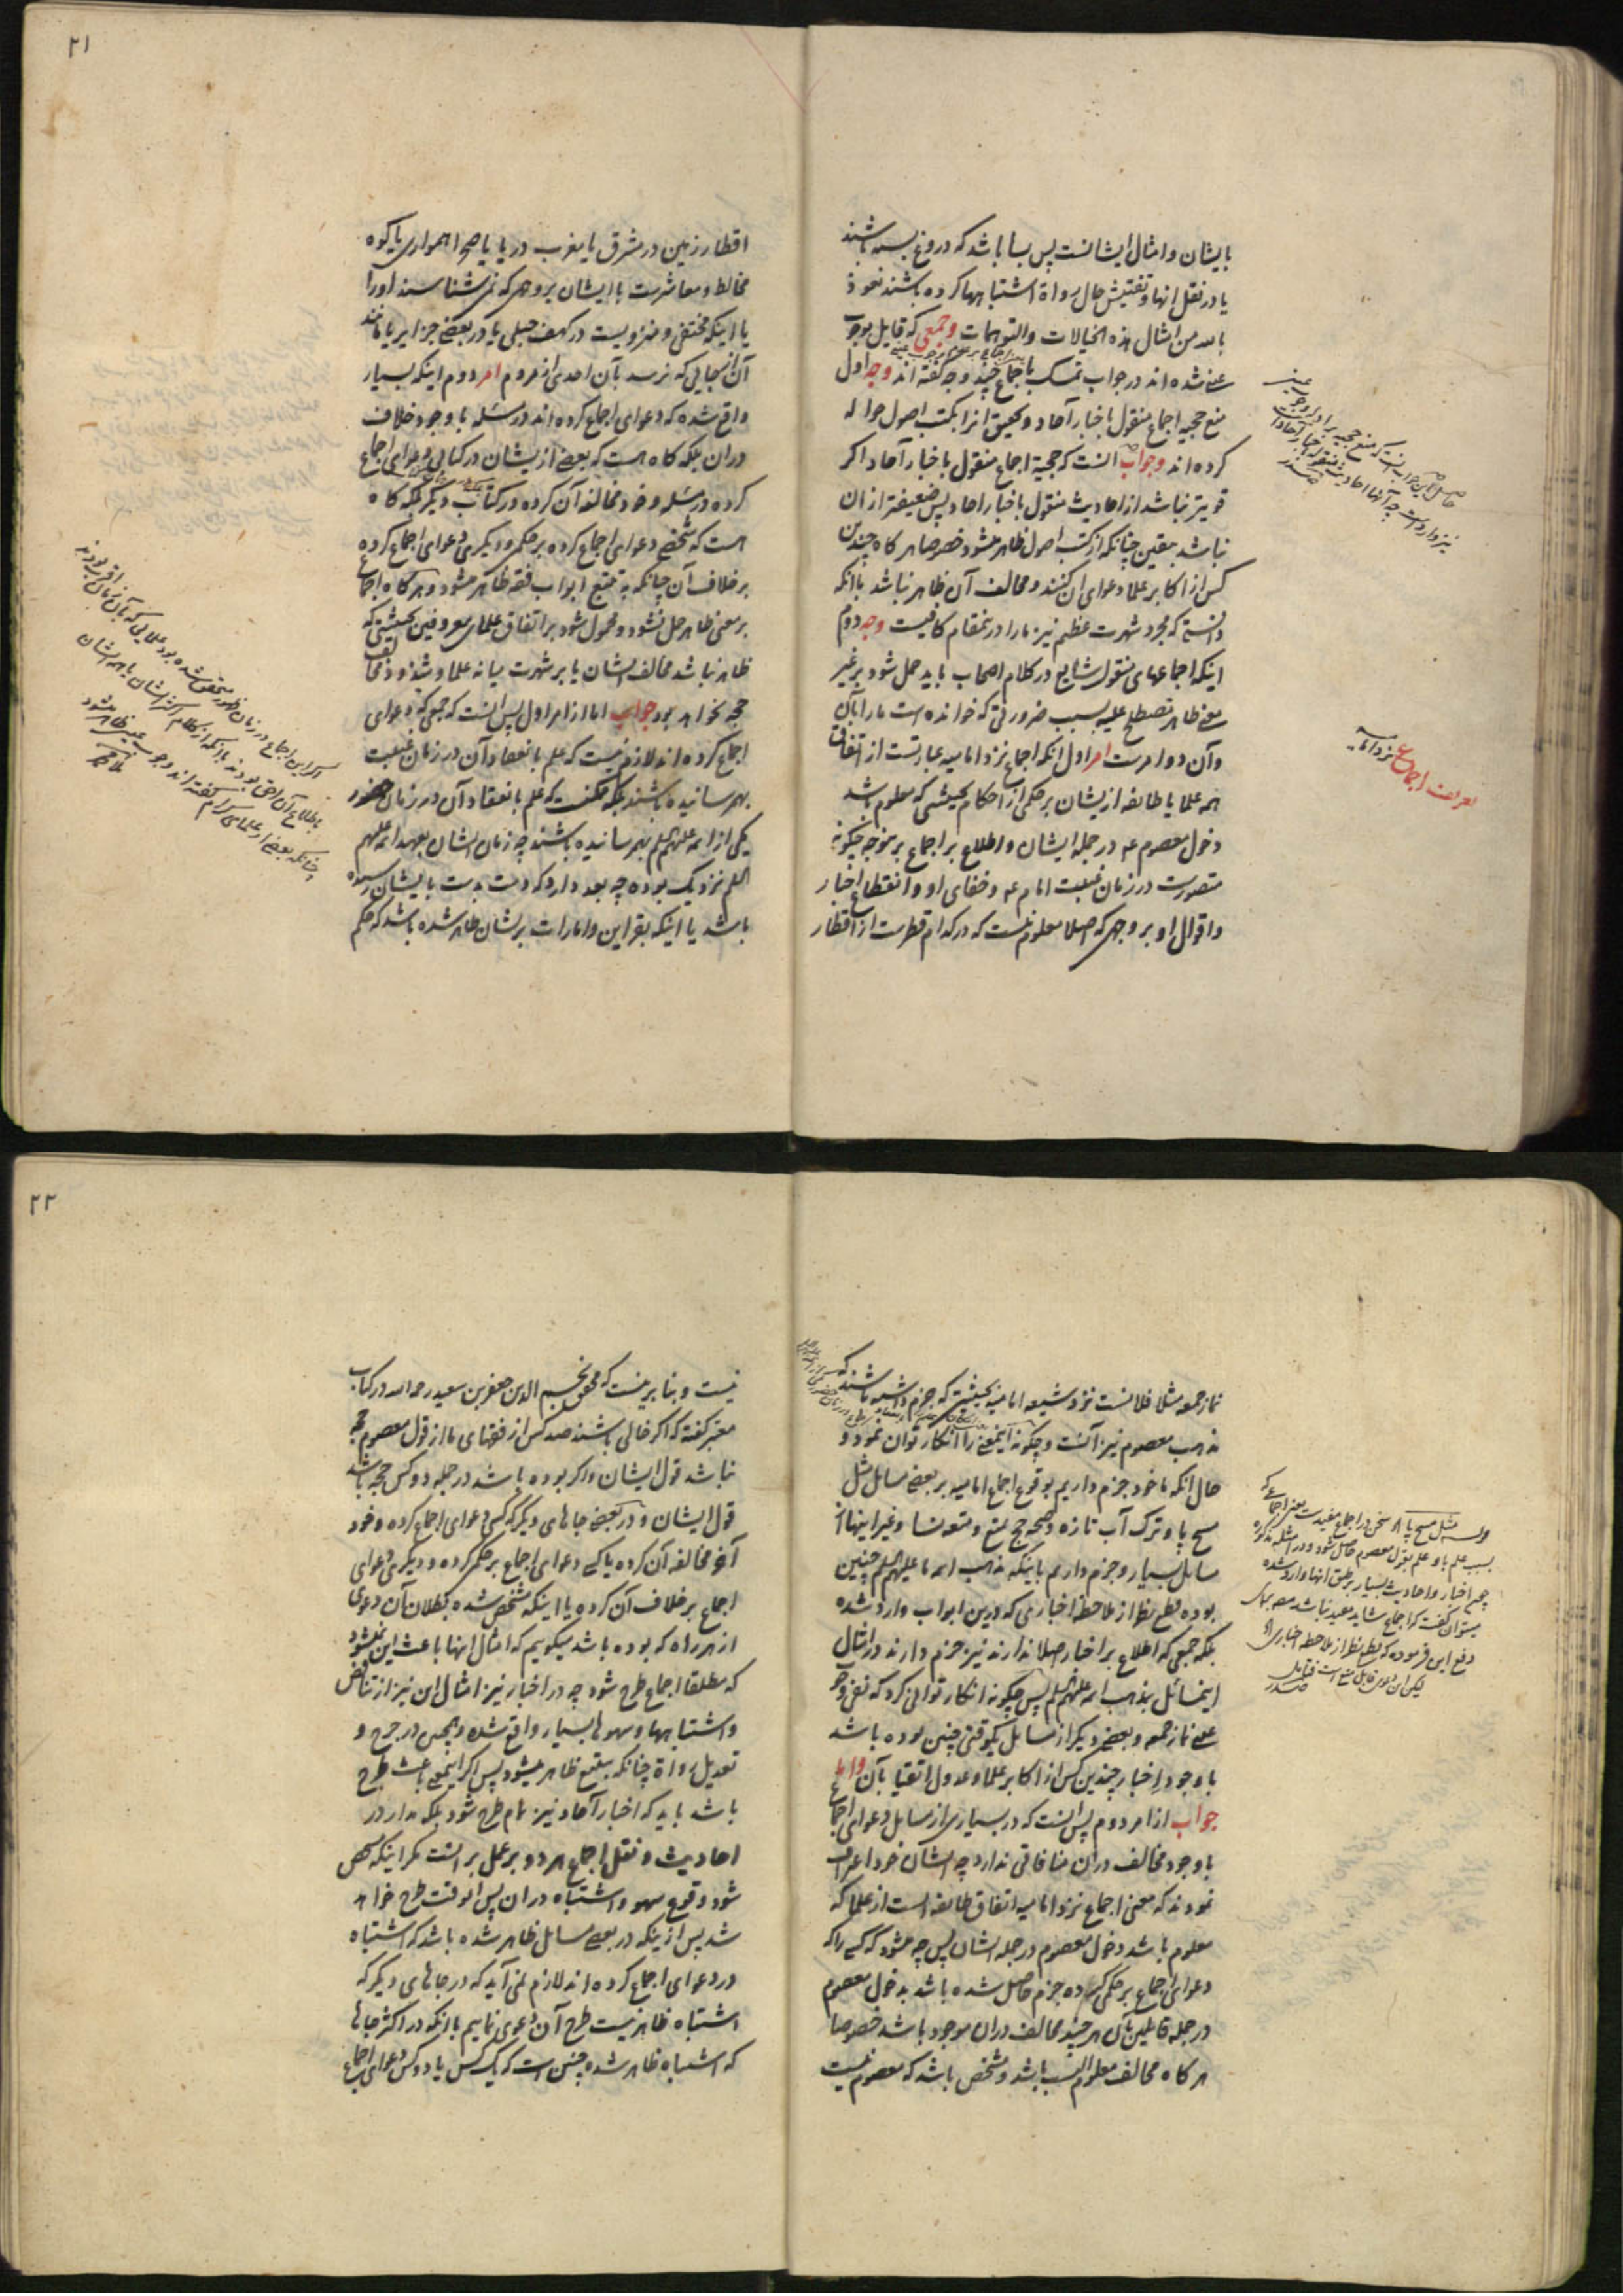 بایشان و امثال ایشانست پس بسا باشد که دروغ بسته باشند
یا در نقل انها و تفتیش حال رواة اشتباهها کرده باشند نعوذ
بالله من امثال هذه الخیالات والتوهمات وجمعی که قایل بوجوب
عینی شده اند در جواب تمسک باجماع چند وجه گفته اند وجه اول
منع حجیة اجماع منقول باخبار آحاد و تحقیق انرا بکتب اصول حواله
کرده اند وجواب آنست که حجیة اجماع منقول باخبار آحاد اکر
قویتر نباشد از احادیث منقول باخبار احاد پس ضعیفتر از ان
نباشد بیقین چنانکه از کتب اصول ظاهر میشود خصوصا هر کاه چندین
کس از اکابر علما دعوای ان کنند و مخالف آن ظاهر نباشد باانکه
دانستی که مجرد شهرت عظیم نیز ما را درینمقام کافیست وجه دوم
اینکه اجماعهای منقول شایع در کلام اصحاب باید حمل شود بر غیر
معنی ظاهر مصطلح علیه بسبب ضرورتی که خوانده است ما را بآن
وآن دو امرست امر اول انکه اجماع نزد امامیه عبارتست از اتفاق
همه علما یا طایفه از یشان بر حکمی از احکام بحیثی که معلوم باشد
دخول معصوم ع در جمله ایشان و اطلاع بر اجماع برینوجه چگونه
متصورست در زمان غیبت امام ع و خفای او و انقطاع اخبار
و اقوال او بر وجهی که اصلا معلوم نیست که در کدام قطرست از اقطار
تعریف اجماع نزد امامیه
۲۱
اقطار زمین در مشرق یا مغرب دریا یا صحرا همواری یا کوه
مخالط و معاشرست باایشان بر وجهی که نمی شناسند اورا
یا اینکه مختفی و منزویست در کهف جبلی یا در بعضی جزایر یا مانند
آن از جایی که نرسد بآن احدی از مردم امر دوم اینکه بسیار
واقع شده که دعوای اجماع کرده اند در مسئله با وجود خلاف
دران بلکه کاه هست که بعضی از یشان در کتابی دعوای اجماع
کرده در مسئله و خود مخالفه آن کرده در کتاب دیگر بلکه کاه
هست که شخصی دعوای اجماع کرده بر حکمی و دیگری دعوای اجماع کرده
بر خلاف آن چنانکه به تتبع ابواب فقه ظاهر میشود و هر کاه اجماع
بر معنی ظاهر حمل نشود و محمول شود بر اتفاق علمای معروفین بحیثیتی که
ظاهر نباشد مخالف ایشان یا بر شهرت میانه علما و شذوذ مخالف
حجه نخواهد بود جواب اما از امر اول پس انست که جمعی که دعوای
اجماع کرده اند لازم نیست که علم بانعقاد آن در زمان غیبت
بهم رسانیده باشند بلکه ممکنست که علم بانعقاد آن در زمان حضور
یکی از ائمه علیهم السلم بهم رسانیده باشند چه زمان ایشان بعهد ائمه علیهم
السلم نزدیک بوده چه بعد دارد که دست بدست بایشان رسیده
باشد یا اینکه بقراین و امارات بریشان ظاهر شده باشد که حکم
نماز جمعه مثلا فلانست نزد شیعه امامیه بحیثیتی که جزم داشته باشند که
مذهب معصوم نیز آنست و چگونه اینمعنی را انکار توان نمود و
حال انکه ما خود جزم داریم بوقوع اجماع امامیه بر بعضی مسایل مثل
مسح پا و ترک آب تازه و صحه حج تمتع و متعه نسا و غیر اینها از
مسایل بسیار و جزم داریم باینکه مذهب ائمه ما علیهم السلم چنین
بوده قطع نظر از ملاحظه اخباری که درین ابواب وارد شده
بلکه جمعی که اطلاع بر اخبار اصلا ندارند نیز جزم دارند در امثال
اینمسائل بمذهب ائمه علیهم السلم پس چگونه انکار توانی کرد که نفی وجوب
عینی نماز جمعه و بعضی دیگر از مسایل یکوقتی چنین بوده باشد
با وجود اخبار چندین کس از اکابر علما و عدول اتقیا بآن واما
جواب از امر دوم پس انست که در بسیاری از مسایل دعوای اجماع
با وجود مخالف دران منافاتی ندارد چه ایشان خود اعتراف
نموده‌اند که معنی اجماع نزد امامیه اتفاق طایفه است از علما که
معلوم باشد دخول معصوم در جمله ایشان پس چه میشود که کسی را که
دعوای اجماع بر حکمی کرده جزم حاصل شده باشد بدخول معصوم
در جمله قائلین بآن هر چند مخالف دران موجود باشد خصوصا
هر کاه مخالف معلوم النسب باشد و مشخص باشد که معصوم نیست
۲۲
نیست و بنا برینست که محقق نجم الدین جعفر بن سعید رحمه الله در کتاب
معتبر گفته که اکر خالی باشند صد کس از فقهای ما از قول معصوم حجه
نباشد قول ایشان و اکر بوده باشد در جمله دو کس حجه باشد
قول ایشان و در بعضی جاهای دیگر که کسی دعوای اجماع کرده و خود
آخر مخالفه آن کرده یا کسی دعوای اجماع بر حکمی کرده و دیگری دعوای
اجماع بر خلاف آن کرده یا اینکه مشخص شده بطلان آن دعوی
از هر راه که بوده باشد میگوییم که امثال انها باعث این نمیشود
که مطلقا اجماع طرح شود چه در اخبار نیز امثال این نیز از تناقض
و اشتباهها و سهوها بسیار واقع شده و همچنین در جرح و
تعدیل رواة چنانکه بتتبع ظاهر میشود پس اکر اینمعنی باعث طرح
باشد باید که اخبار آحاد نیز تمام طرح شود بلکه مدار در
احادیث و نقل اجماع هر دو بر عمل بر انست مکر اینکه مشخص
شود وقوع سهو و اشتباه دران پس انوقت طرح خواهد
شد پس از ینکه در بعضی مسایل ظاهر شده باشد که اشتباه
در دعوای اجماع کرده اند لازم نمی آید که در جاهای دیگر که
اشتباه ظاهر نیست طرح آن دعوی نماییم باانکه در اکثر جاها
که اشتباه ظاهر شده چنین است که یک کس یا دو کس دعوای اجماع